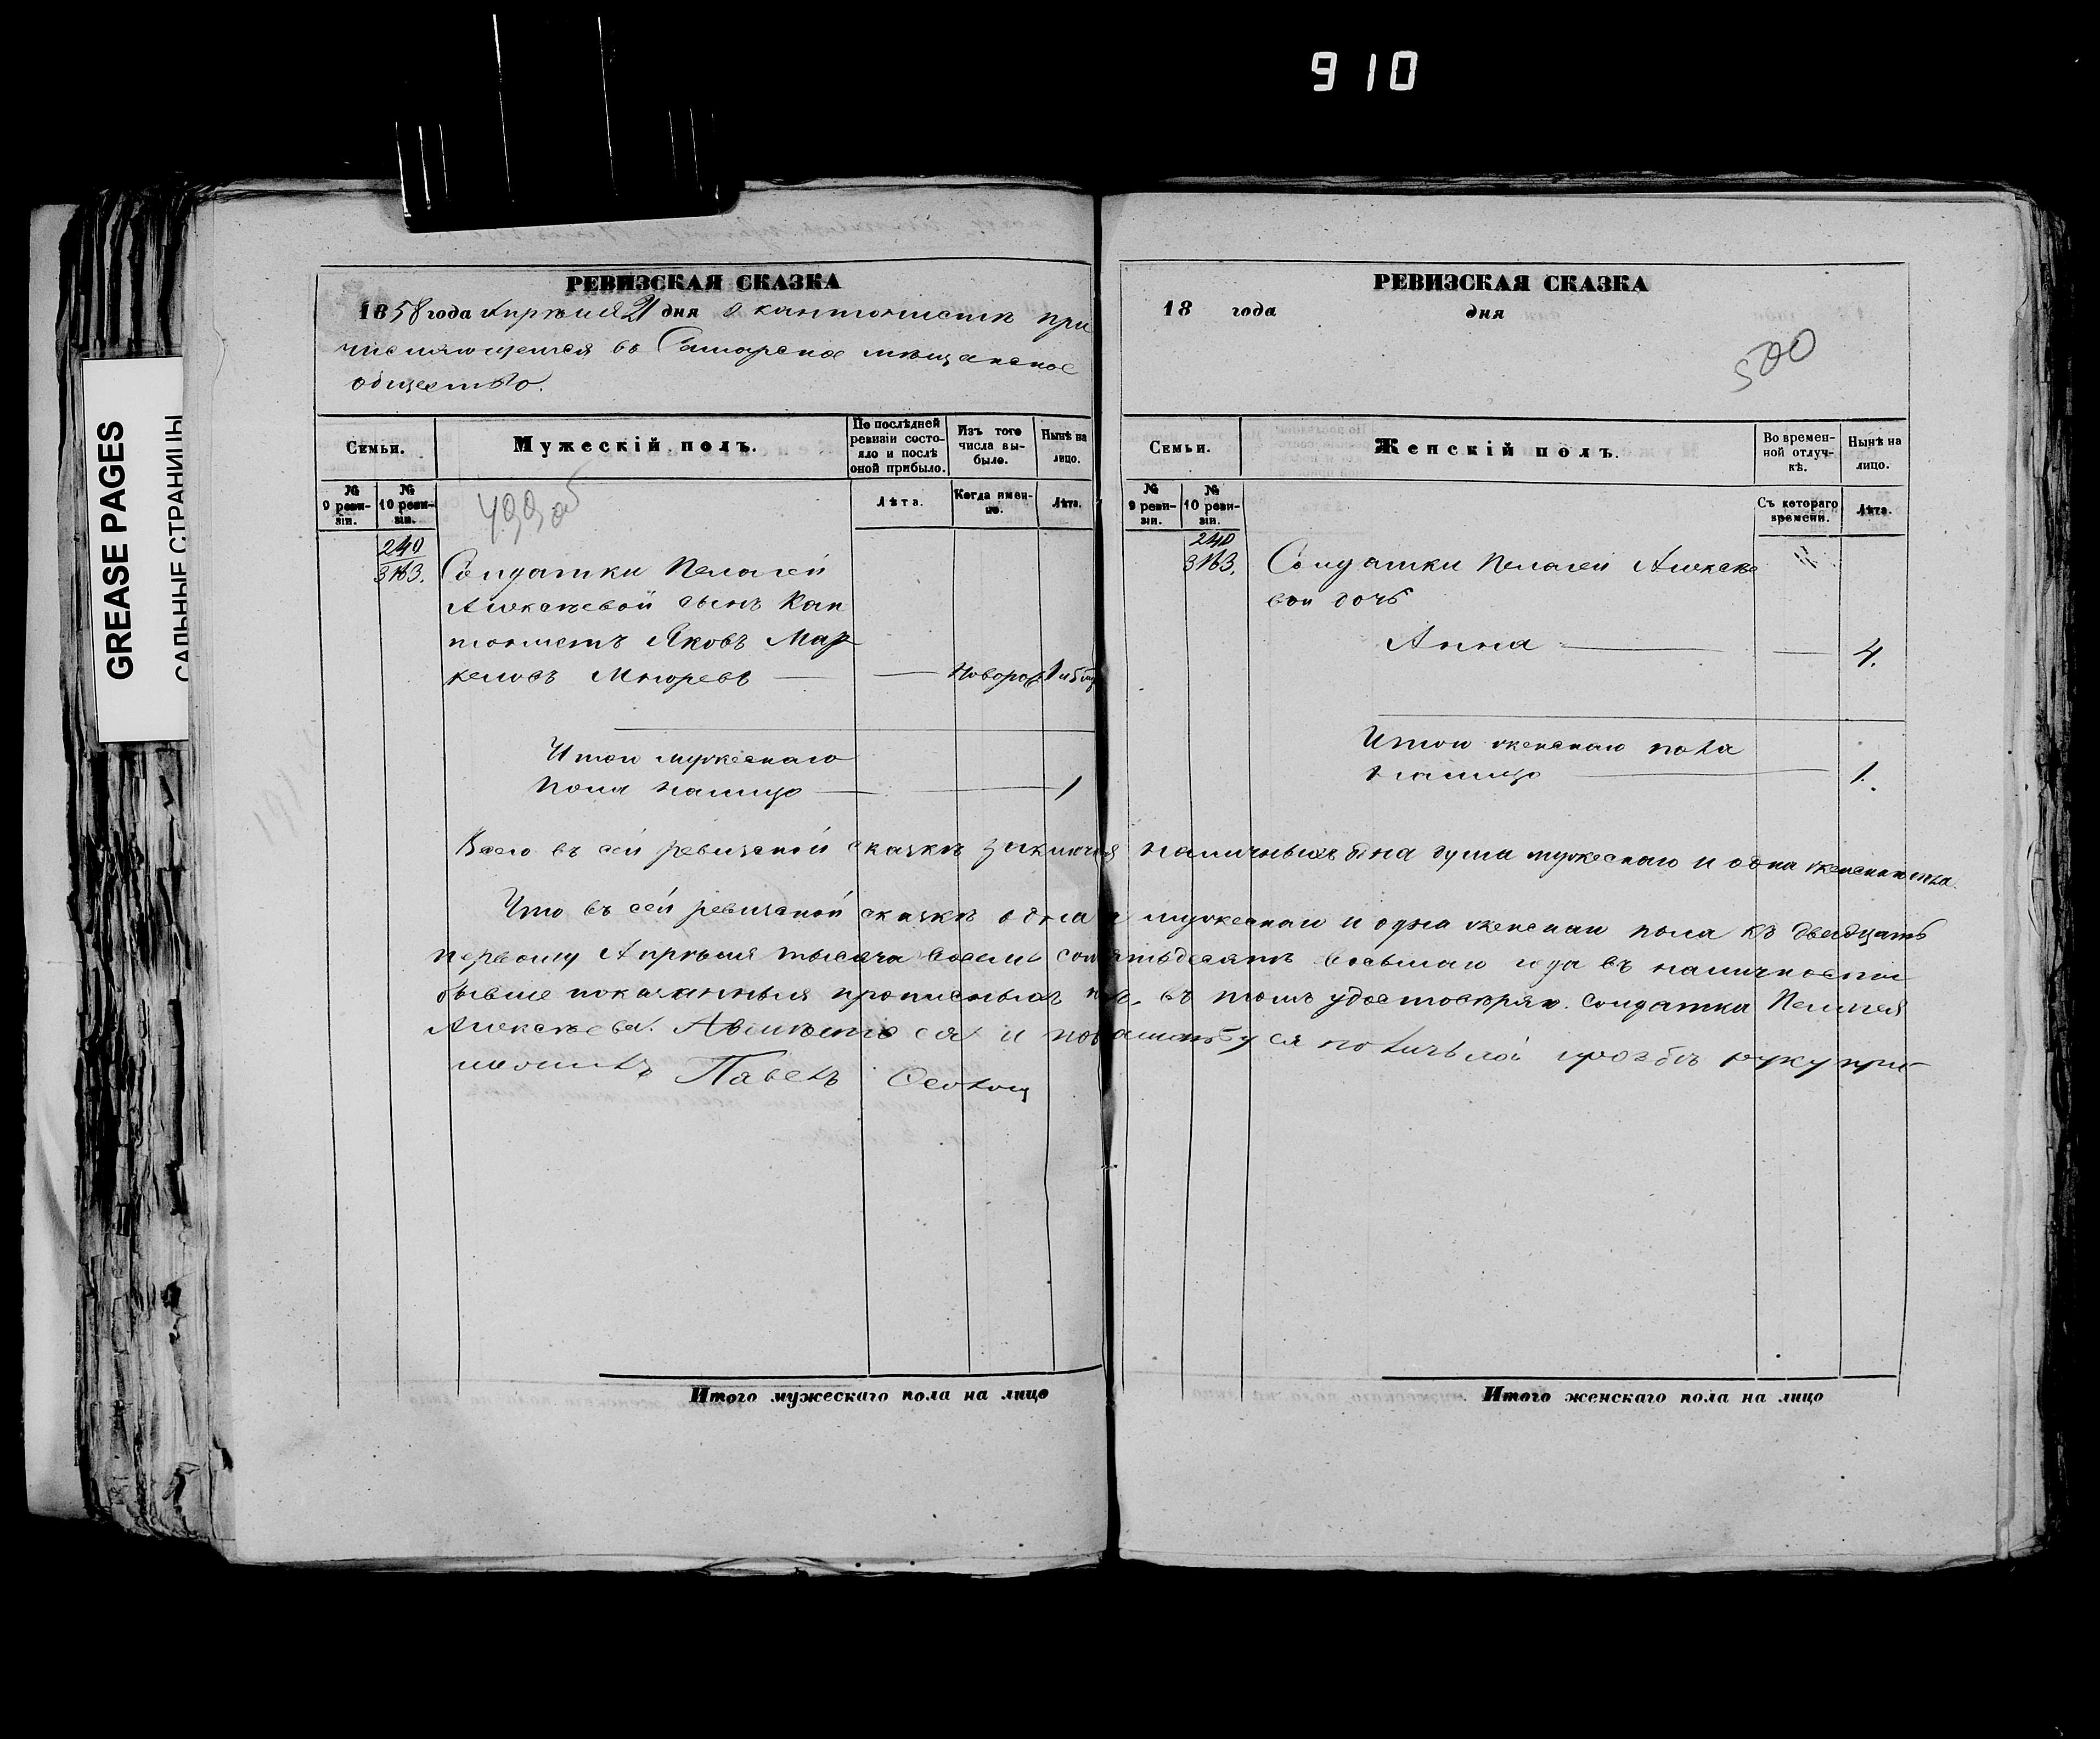 910
GREASE PAGES
САЛЬНЫЕ СТРАНИЦЫ
РЕВИЗСКАЯ СКАЗКА
1858 года Апрѣля 21 дня о кантонистѣ при
числяющемся въ Самарское мѣщанское
общество.
Семьи.
Мужескій полъ.
По послѣдней ревизіи состояло и послѣ оной прибыло.
Изъ того числа выбыло.
Нынѣ на лицо.
№ 9 ревизіи.
№ 10 ревизіи.
499 об
Лѣта.
Когда именно.
Лѣта.
240
3163.
Солдатки Пелагеи
Алексѣевой сынъ Кан
тонистъ Яковъ Мар
келовъ
Новорож 1 и 5 мѣ
Итого мужескаго
пола налицо 1
РЕВИЗСКАЯ СКАЗКА
18 года дня
500
Семьи.
Женскій полъ.
Во временной отлучкѣ.
Нынѣ на лицо.
№ 9 ревизіи.
№ 10 ревизіи.
Съ котораго времени.
Лѣта.
240
3163.
Солдатки Пелагеи Алексѣе
вой дочь
Анна 4.
Итого женскаго пола
налицо 1.
Всего въ сей ревизской сказкѣ наличныхъ одна душа мужескаго и одна женскаго пола.
Что въ сей ревизской сказкѣ одна мужескаго и одна женскаго пола къ двадцать
первому Апрѣля тысяча восемь сотъ пятьдесятъ восьмаго года въ наличности
бывше показанныя въ томъ удостовѣряю. солдатка Пелагея
Алексѣева. А вместо ея и по ея по личьной прозбѣ руку при
ложилъ Павелъ
Итого мужескаго пола на лицо
Итого женскаго пола на лицо